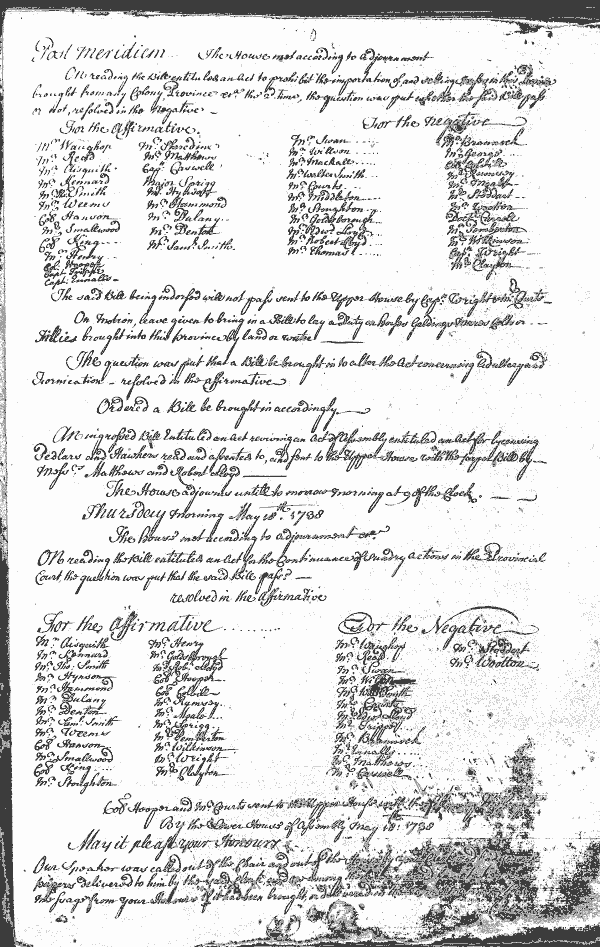 Post Meridiem The House met according to Adjournment
On reading the Bill entituled an Act to prohibit the importation of and selling in this Province
brought from any Colony Province &ca the 2d time, the question was put whether the said Bill pass
or not, resolved in the Negative
For the Affirmative. For the Negative
Mr. Waughop Mr. Sheredine Mr. Swan Mr. Bramnock
Mr. Read Mr. Matthews Mr. Wilson Mr. George
Mr. Aisquith Capt. Caswell Mr. Mackall Col. Colvill
Mr. Kennard Major Sprigg Mr. Walter Smith Mr. Rumsey
Mr. Tho. Smith Mr. Hynson Mr. Courts
Mr. Weems Mr. Hammond Mr. Middleton Mr. Stoddart
Col. Hanson Mr. Dulany Mr. Stoughton Mr. Wootton
Mr. Smallwood Mr. Denton Mr. Goldsborough
Col. King Mr. Saml. Smith Mr. Edwd. Lloyd Mr. Pemberton
Mr. Henry Mr. Robert Lloyd Mr. Wilkinson
Col. Hooper Mr. Thomas Capt. Wright
Mr. Clayton
Capt. Ennalls
The said Bill being indorsed will not pass sent to the Upper House by Capt. Wright & Mr. Courts
On Motion, leave given to bring in a Bill to lay a Duty on horses Geldings Mares Colts or
Fillies brought into this Province by land or water
The question was put that a Bill be brought in to alter the Act concerning Adultery and
Fornication resolved in the affirmative
Ordered a Bill be brought in accordingly
An ingrossed Bill Entituled an Act reviving an Act of Assembly entituled an Act for lycensing
Pedlars and Hawkers read and assented to, and sent to the Upper House with the paper Bill by
Messrs. Matthews and Robert Lloyd
The House adjourns untill to morrow morning at 9 of the Clock.
Thursday morning May 18th. 1738
The house met according to adjournment &ca.
On reading the Bill entituled an Act for the Continuance of Sundry Actions in the Provincial
Court, the question was put that the said Bill pass?
resolved in the Affirmative
For the Affirmative For the Negative
Mr. Aisquith Mr. Henry Mr. Waughop Mr. Stoddart
Mr. Kennard Mr. Goldsborough Mr. Read Mr. Wootton
Mr. Tho. Smith Mr. Robt. Lloyd Mr. Swan
Mr. Hynson Col. Hooper Mr. Wilson
Mr. Hammond Col. Colvill
Mr. Dulany Mr. Rumsey Mr. Courts
Mr. Denton Mr. Edwd. Lloyd
Mr. Saml. Smith Mr. Sprigg
Mr. Weems Mr. Pemberton Mr. Bramnock
Col. Hanson Mr. Wilkinson Mr. Ennalls
Mr. Smallwood Mr. Wright Mr. Matthews
Col. King Mr. Clayton Mr. Caswell
Mr. Stoughton
Col. Hooper and Mr. Courts sent to the Upper House with the
By the Lower House of Assembly May 18th. 1738
May it please your Honours
Our Speaker was called out of the Chair and out of the
papers delivered to him by the among the
Message from your Honours if it had been brought, or delivered in the